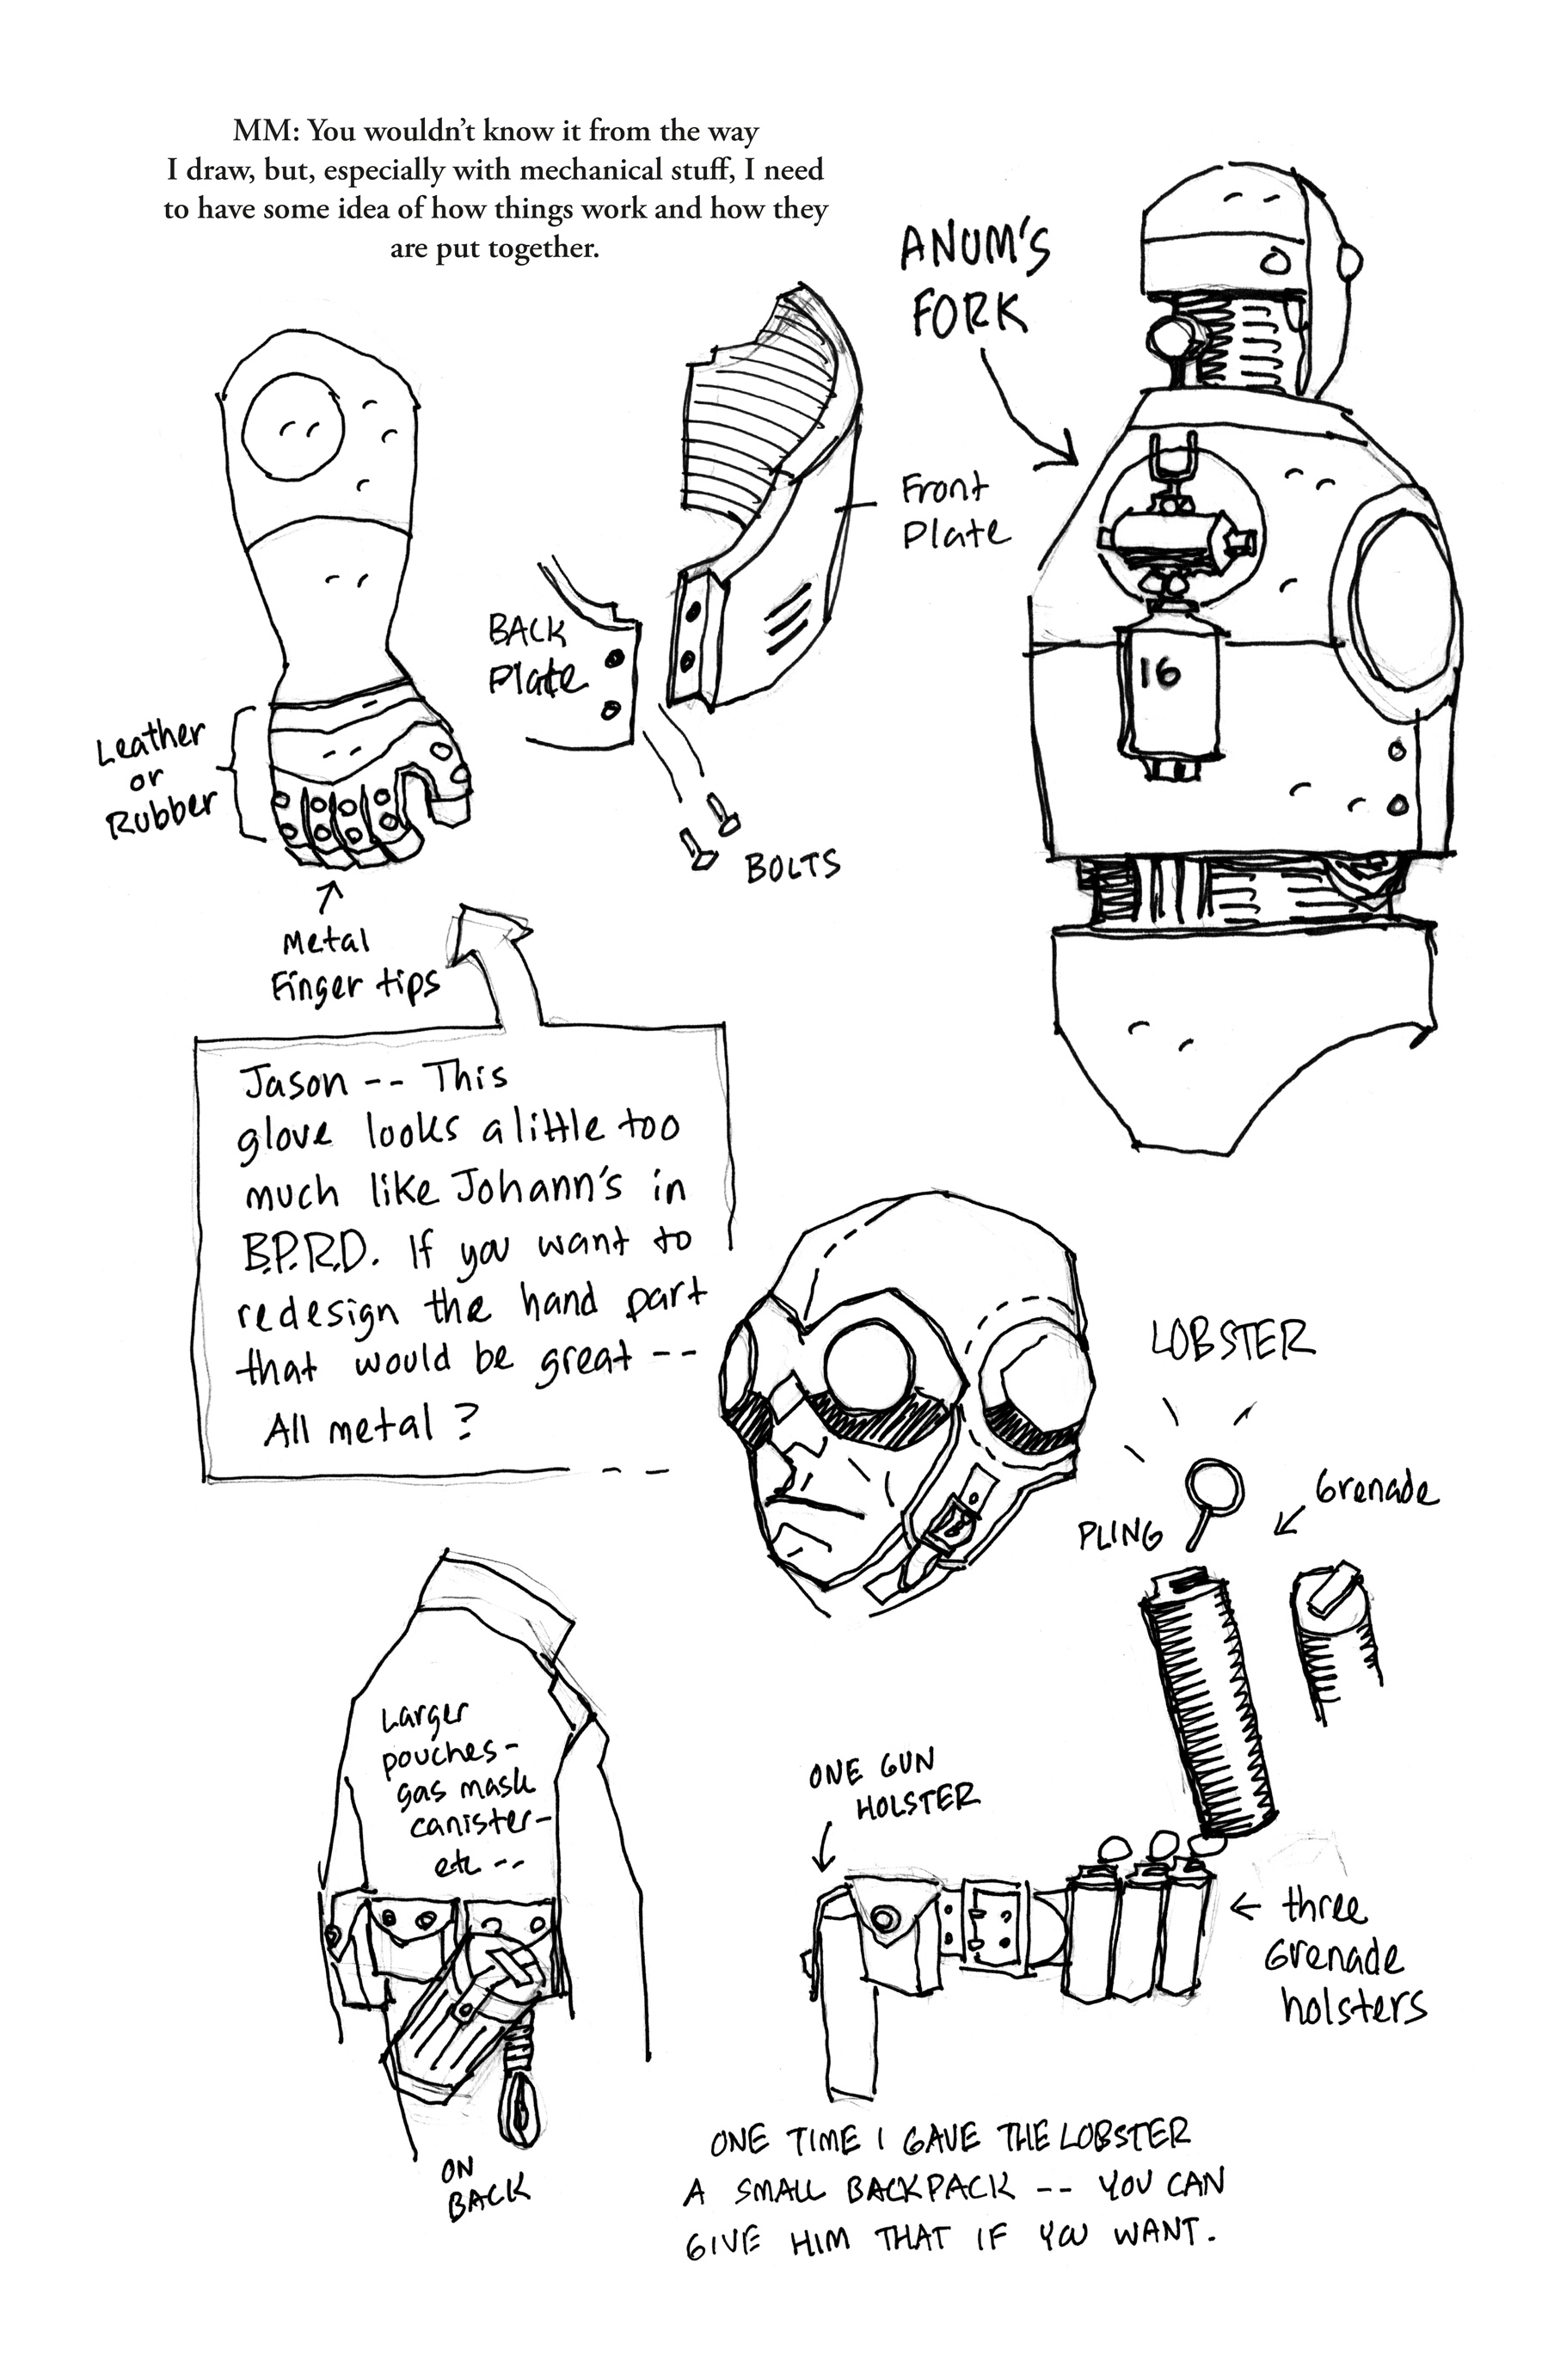 MM: You wouldn’t know it from the way
I draw, but, especially with mechanical stuff, I need
to have some idea of how things work and how they
are put together.
ANUM'S
FORK
Front
Plate
BACK
Plate
16
Leather
or
Rubber
BOLTS
Metal
Finger tips
Jason -- This
glove looks a little too
much like Johann's in
B.P.R.D. If you want to
redesign the hand part
that would be great --
All metal?
LOBSTER
PLING
Grenade
Larger
pouches-
gas mask
canister-
etc --
ONE GUN
HOLSTER
three
Grenade
holsters
ON
BACK
ONE TIME I GAVE THE LOBSTER
A SMALL BACKPACK -- YOU CAN
GIVE HIM THAT IF YOU WANT.